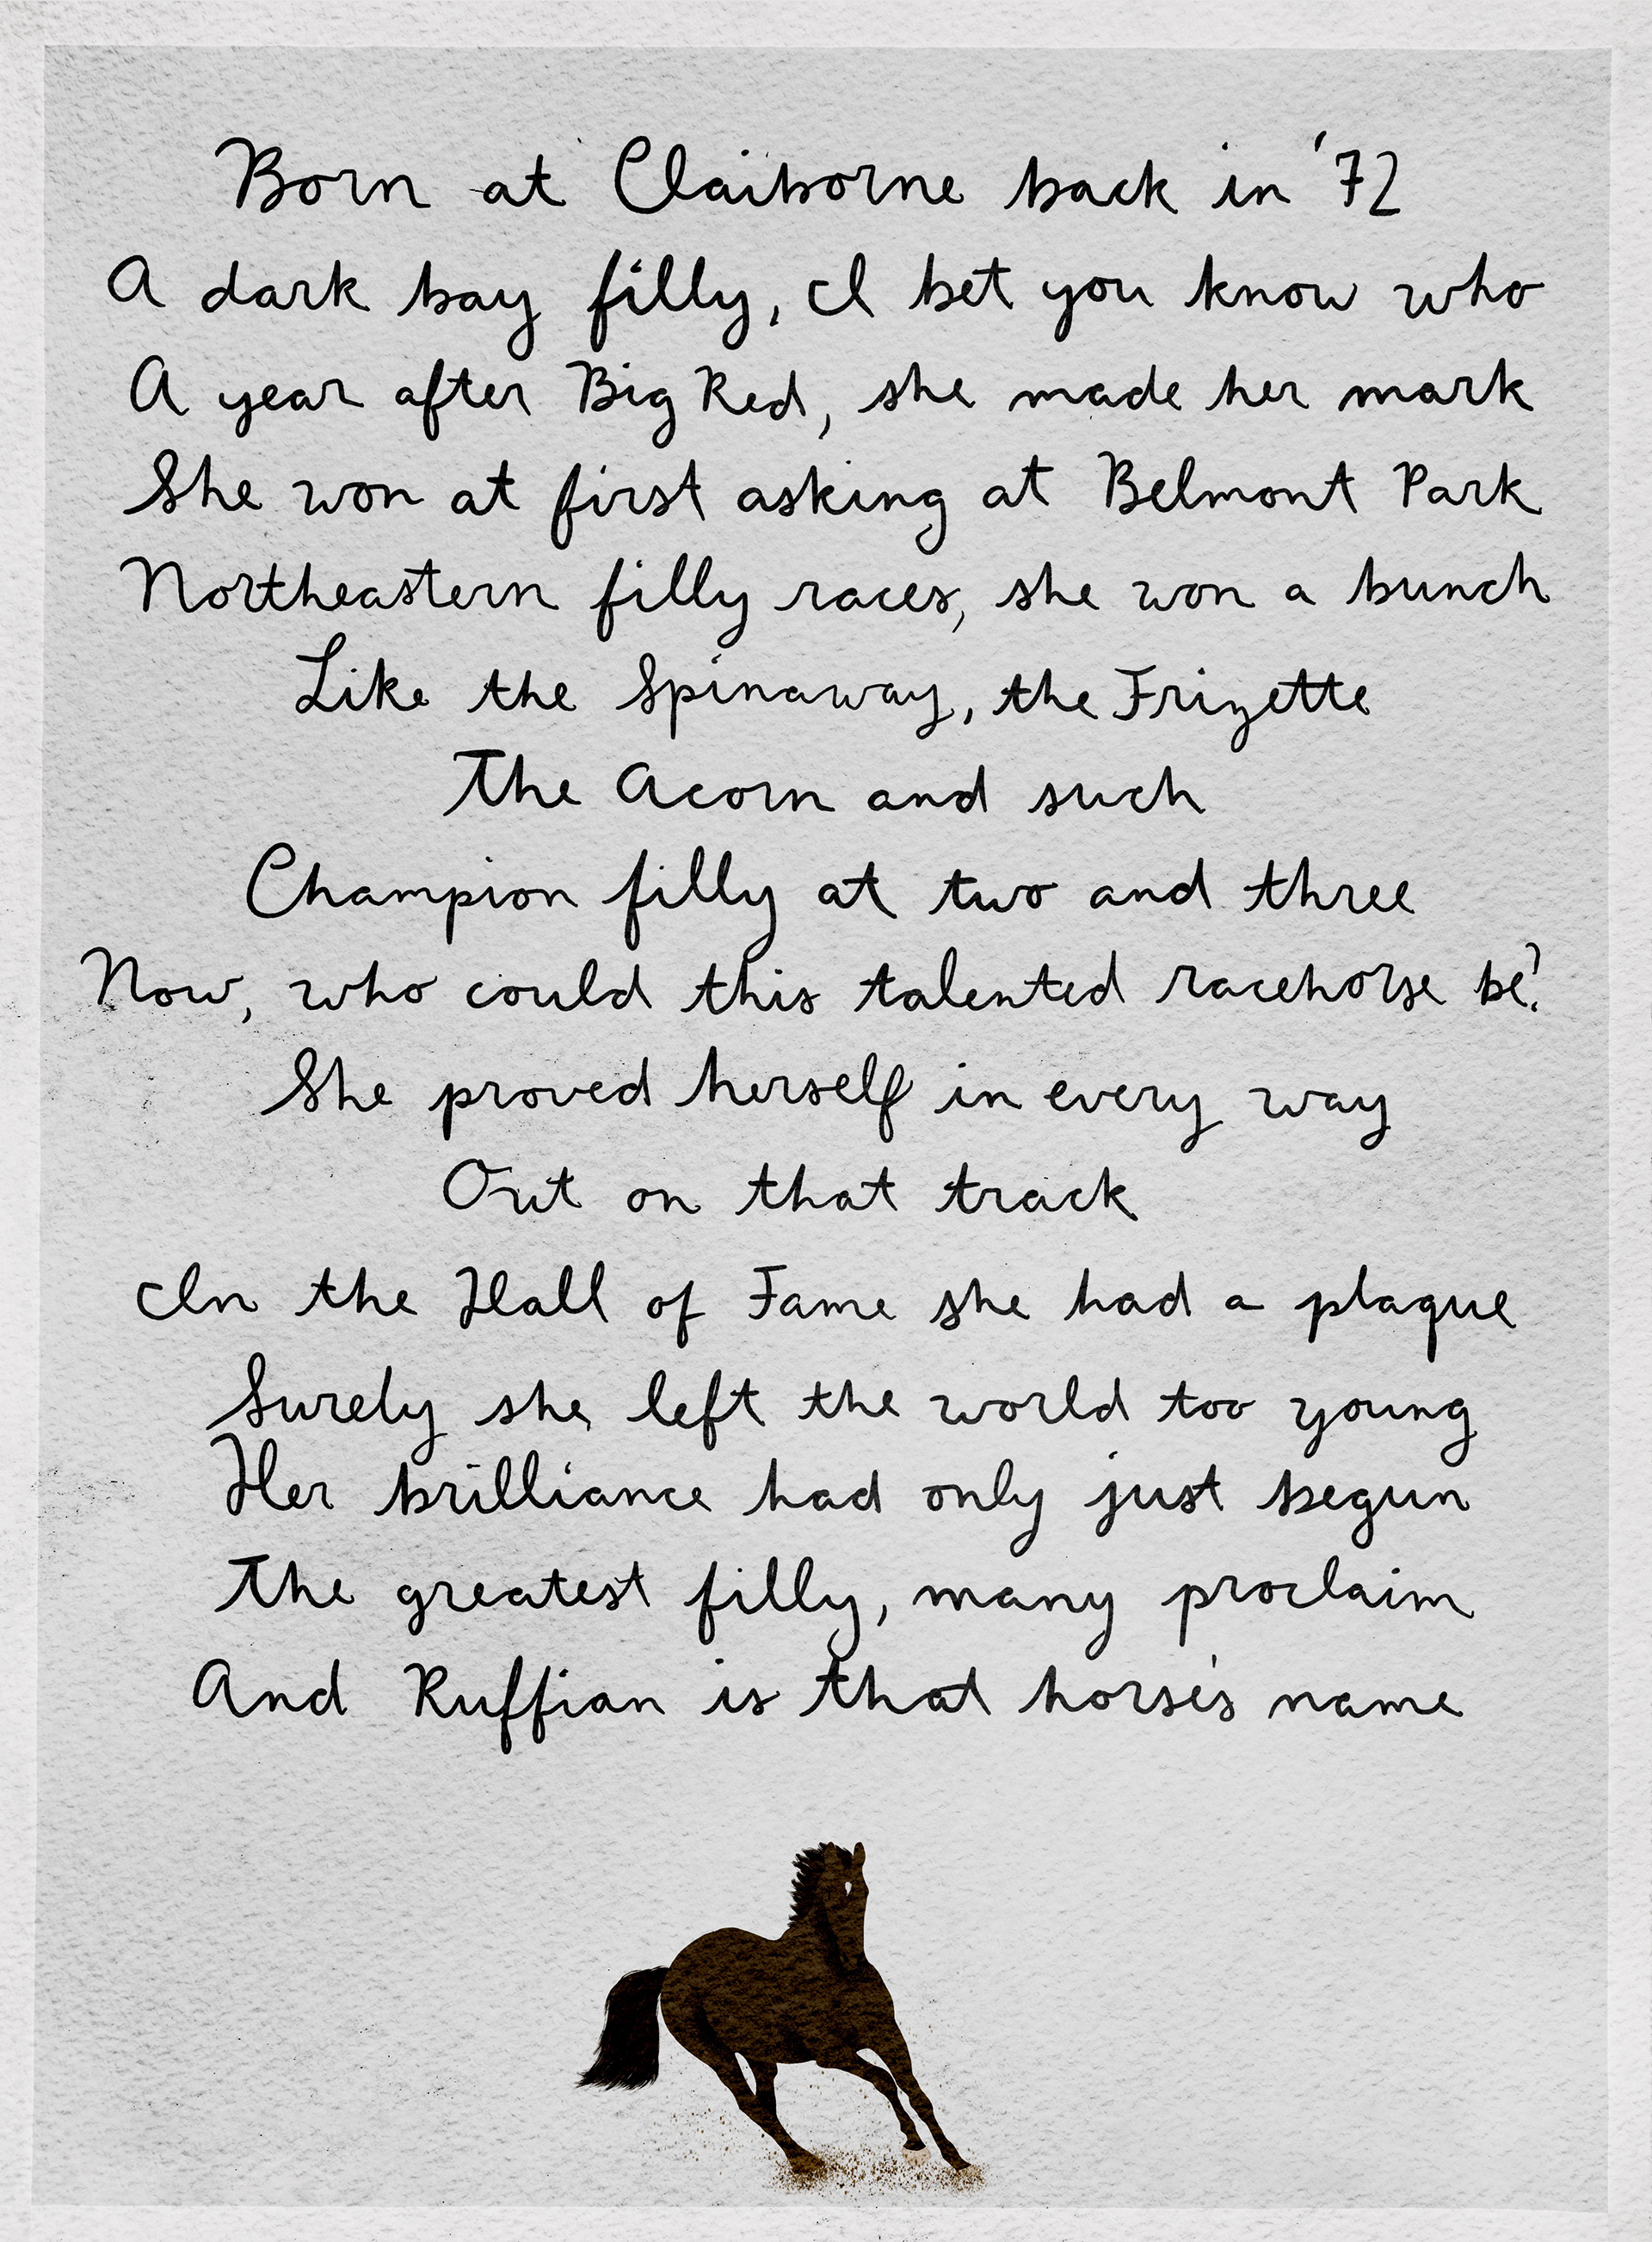 Born at Claiborne back in '72
A dark bay filly, I bet you know who
A year after Big Red, she made her mark
She won at first asking at Belmont Park
Northeastern filly races, she won a bunch
Like the Spinaway, the Frizette
The Acorn and such
Champion filly at two and three
Now, who could this talented racehorse be?
She proved herself in every way
Out on that track
In the Hall of Fame she had a plaque
Surely she left the world too young
Her brilliance had only just begun
The greatest filly, many proclaim
And Ruffian is that horse's name